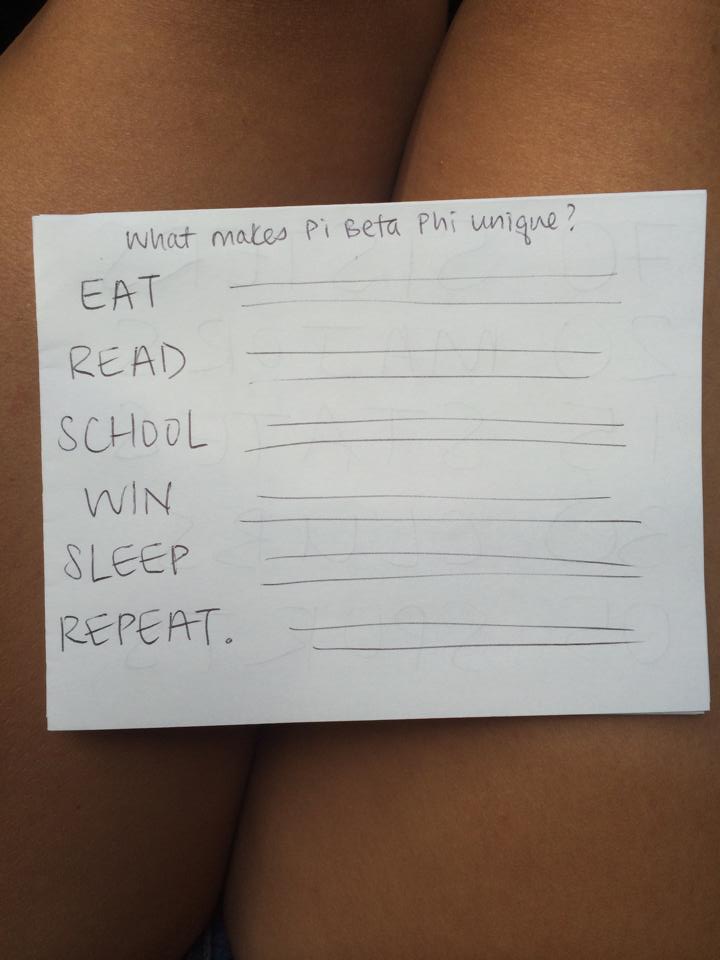 What makes Pi Beta Phi unique?
EAT
READ
SCHOOL
WIN
SLEEP
REPEAT.